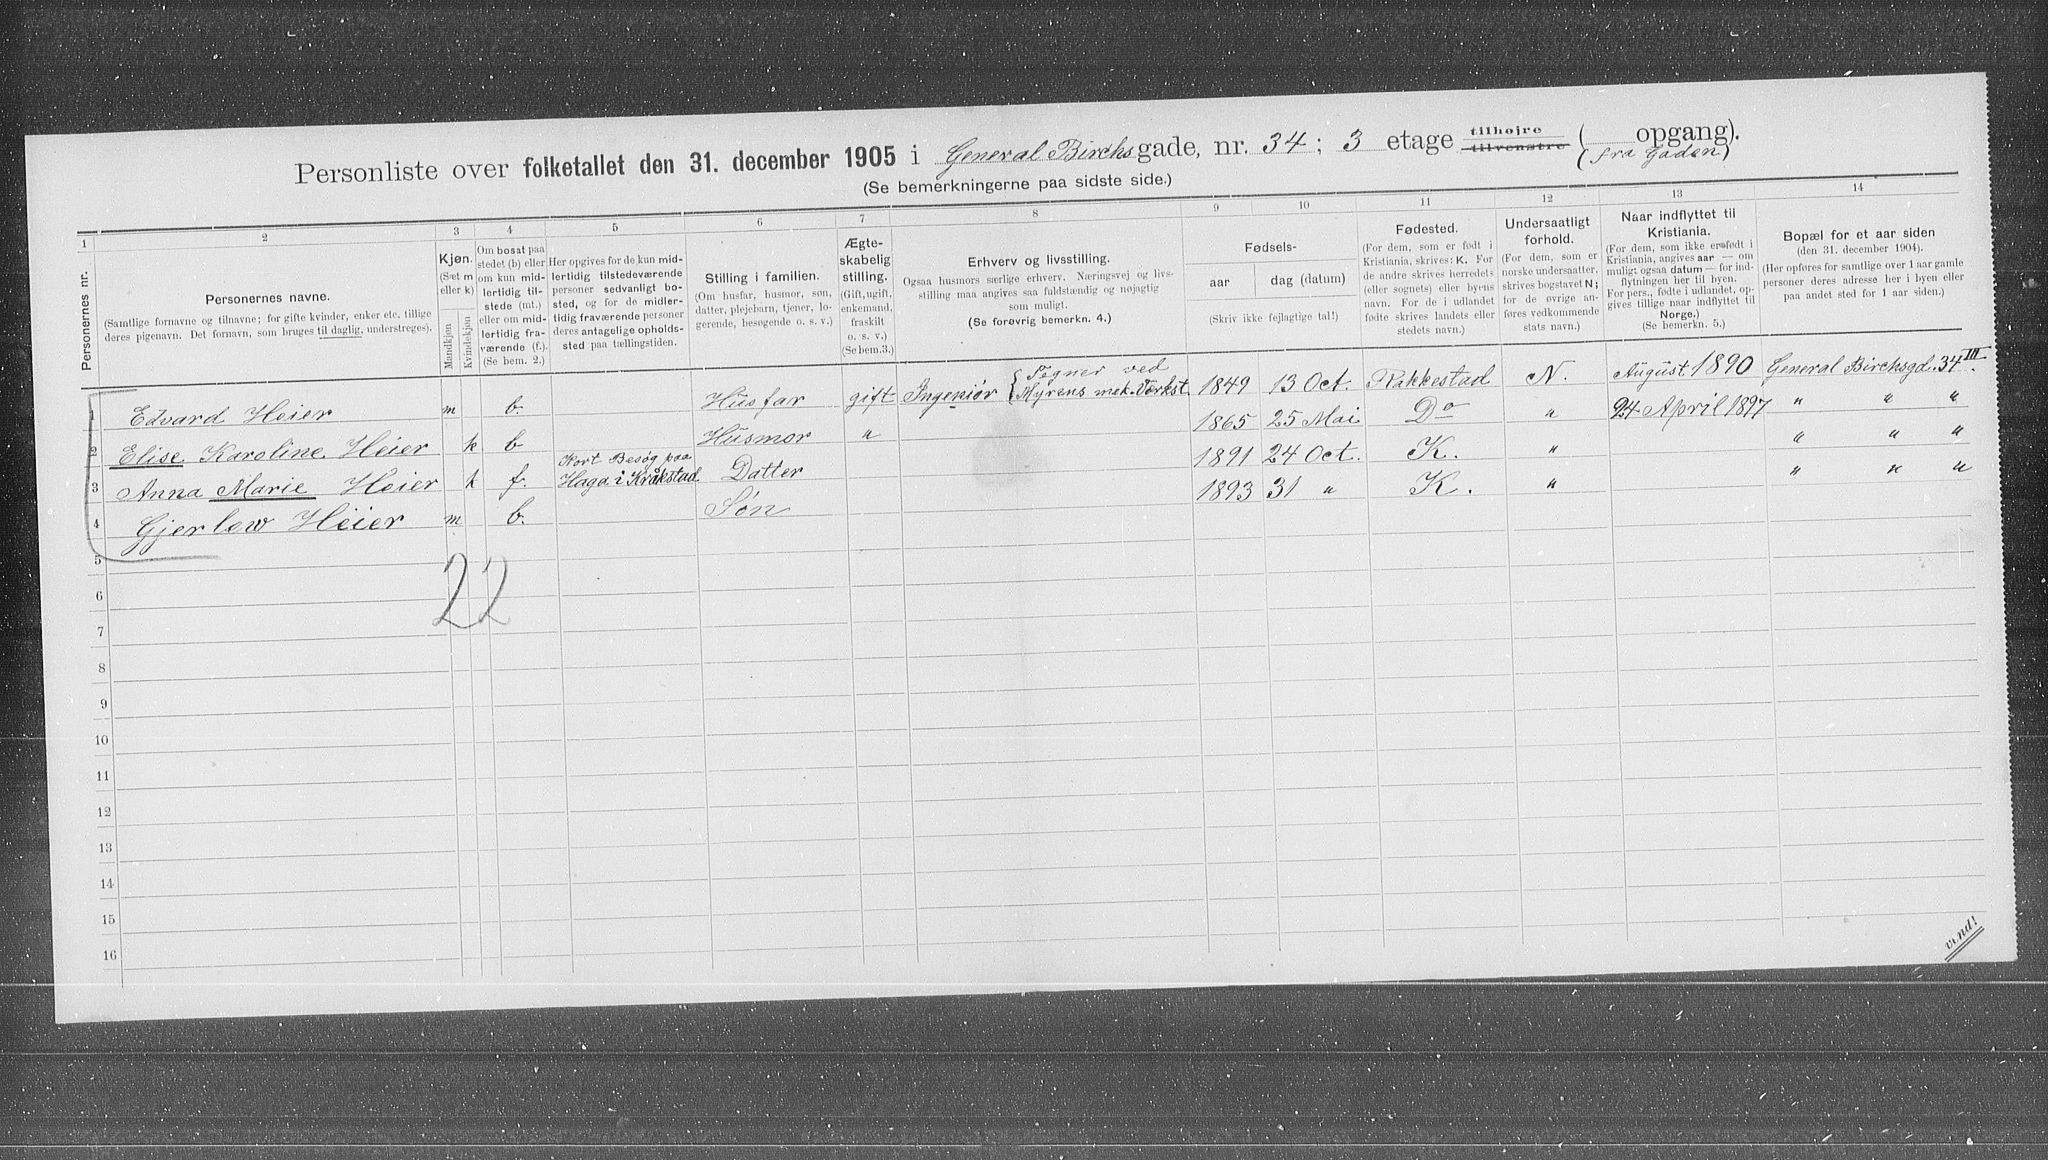 Personliste over folketallet den 31. december 1905 i General Birchs gade, nr. 34; 3 etage tilhøjre tilvenstre ( opgang).
(fra Gaden)
(Se bemerkningerne paa sidste side.)
1 2 3 4 5 6 7 8 9 10 11 12 13 14
Personernes nr.
Personernes navne.
(Samtlige fornavne og tilnavne; for gifte kvinder, enker etc. tillige
deres pigenavn. Det fornavn, som bruges til daglig, understreges).
Kjøn.
(Sæt m
eller k)
Mandkjøn
Kvindekjøn
Om bosat paa
stedet (b) eller
om kun mid-
lertidig til-
stede (mt.)
eller om mid-
lertidig fra-
værende (f.)
(Se bem. 2.)
Her opgives for de kun mid-
lertidig tilstedeværende
personer sedvanligt bo-
sted, og for de midler-
tidig fraværende personer
deres antagelige opholds-
sted paa tællingstiden.
Stilling i familien.
(Om husfar, husmor, søn,
datter, plejebarn, tjener, lo-
gerende, besøgende o. s. v.)
Ægte-
skabelig
stilling.
(Gift, ugift,
enkemand,
fraskilt
o. s. v.)
(Se bem.3.)
Erhverv og livsstilling.
Ogsaa husmors særlige erhverv. Næringsvej og livs-
stilling maa angives saa fuldstændig og nøjagtig
som muligt.
(Se forøvrig bemerkn. 4.)
Fødsels-
aar dag (datum)
(Skriv ikke fejlagtige tal!)
Fødested.
(For dem, som er født i
Kristiania, skrives: K. For
de andre skrives herredets
(eller sognets) eller byens
navn. For de i udlandet
fødte skrives landets eller
stedets navn.)
Undersaatligt
forhold.
(For dem, som er
norske undersaatter,
skrives bogstavet N;
for de øvrige an-
føres vedkommende
stats navn.)
Naar indflyttet til
Kristiania.
(For dem, som ikke er født i
Kristiania, angives aar — om
muligt ogsaa datum — for ind-
flytningen her til byen.
For pers., fødte i udlandet, op-
gives tillige naar indflyttet til
Norge.)
(Se bemerkn. 5.)
Bopæl for et aar siden
(den 31. december 1904).
(Her opføres for samtlige over 1 aar gamle
personer deres adresse her i byen eller
paa andet sted for 1 aar siden.)
1 Edvard Heier m b. Husfar gift Ingeniør { Tegner ved Myrens mek. Værkst. 1849 13 Oct. Rakkestad N. August 1890 General Birchsgd. 34 III.
2 Elise Karoline Heier k b Husmor " 1865 25 Mai Do " 24 April 1897 " " "
3 Anna Marie Heier k f. Kort Besøg paa Haga i Kråkstad Datter 1891 24 Oct. K. " " " "
4 Gjerlow Heier m b. Søn 1893 31 " K. " " " "
5
22
6
7
8
9
10
11
12
13
14
15
16
vend!